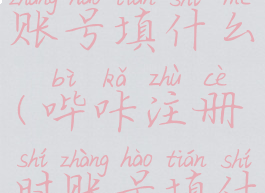 zhàng hào tián shí me
账号填什么
bì kǎ zhù cè
(哔咔注册
shí zhàng hào tián shí
时账号填什